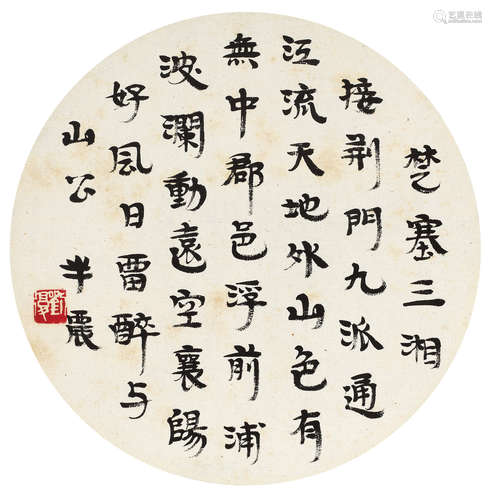 楚塞三湘
接荆門九派通
江流天地外山色有
無中郡邑浮前浦
波瀾動遠空襄陽
好風日畱醉与
山公 半農
劉復